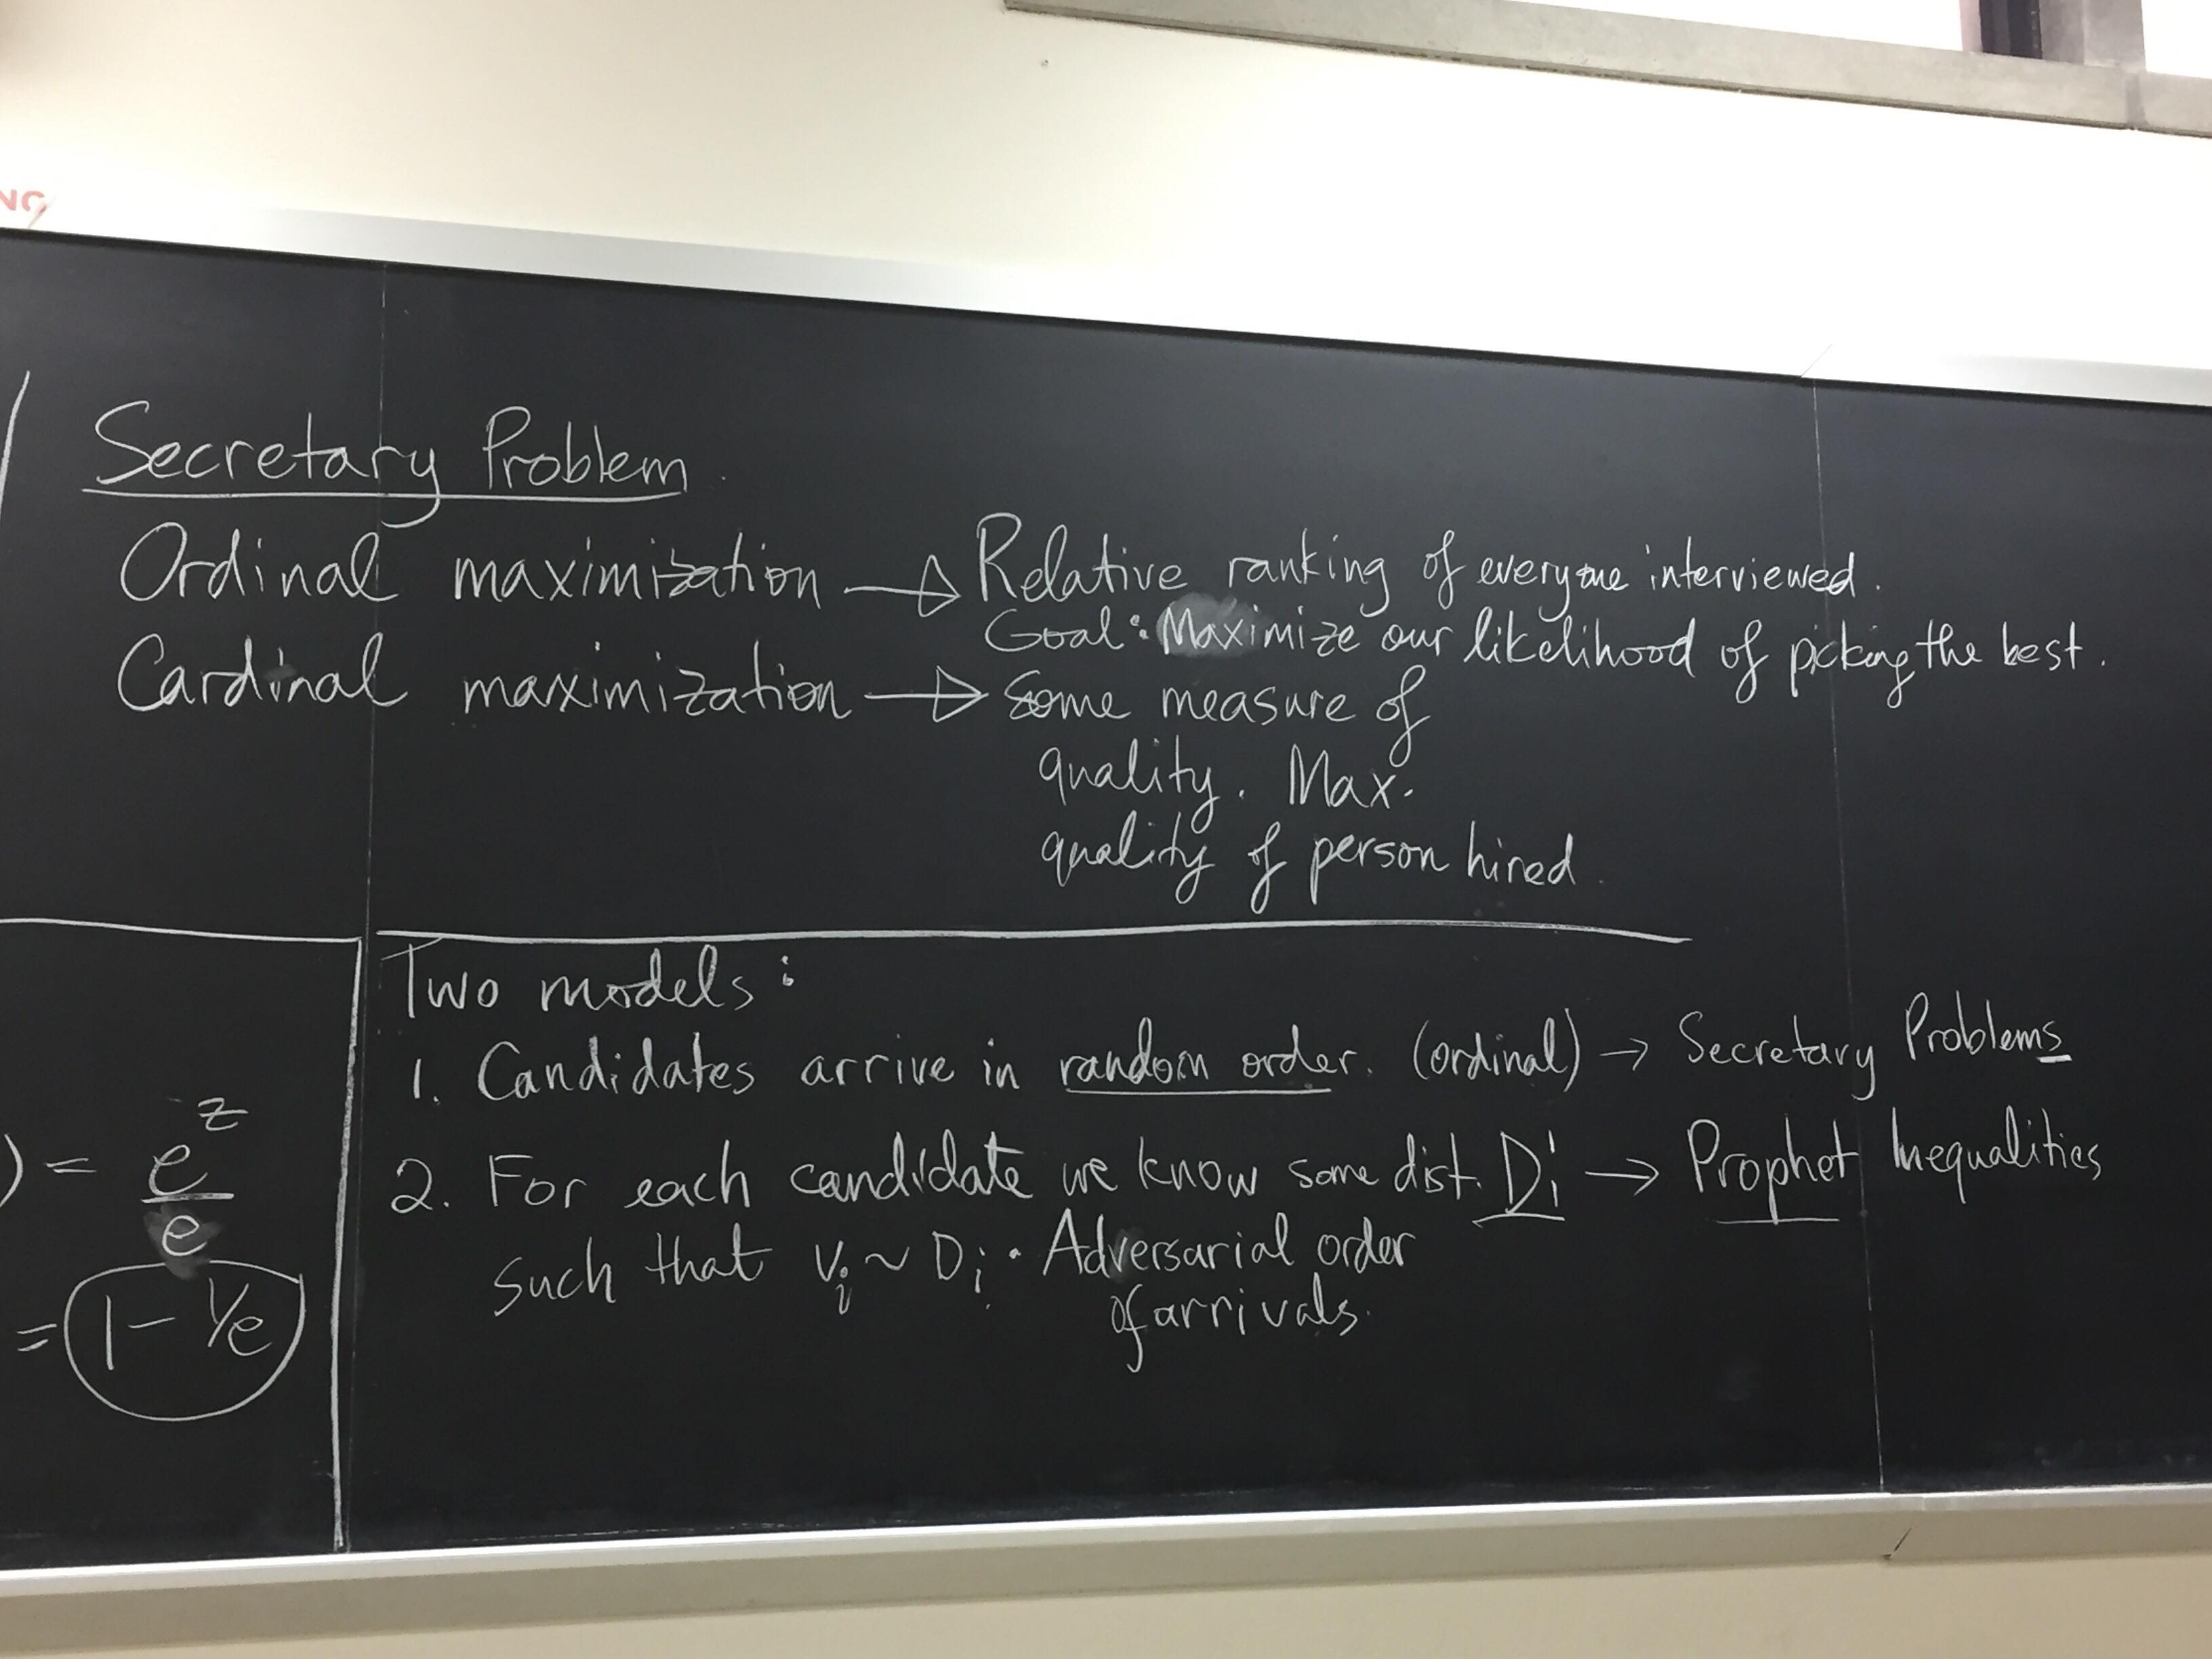 NG
Secretary Problem
Ordinal maximization → Relative ranking of everyone interviewed.
Goal: Maximize our likelihood of picking the best.
Cardinal maximization → Some measure of
quality. Max.
quality of person hired.
Two models:
1. Candidates arrive in random order. (ordinal) → Secretary Problems
2. For each candidate we know some dist. Di → Prophet Inequalities
such that vi ~ Di. Adversarial order
of arrivals.
) = e^z / e
= 1 - 1/e